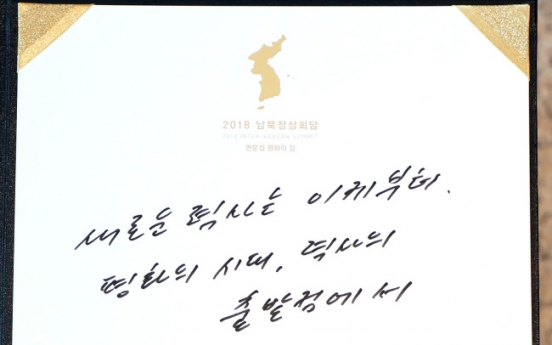 2018 남북정상회담
2018 INTER-KOREAN SUMMIT
판문점 평화의 집
새로운 력사는 이제부터.
평화의 시대, 력사의
출발점에서